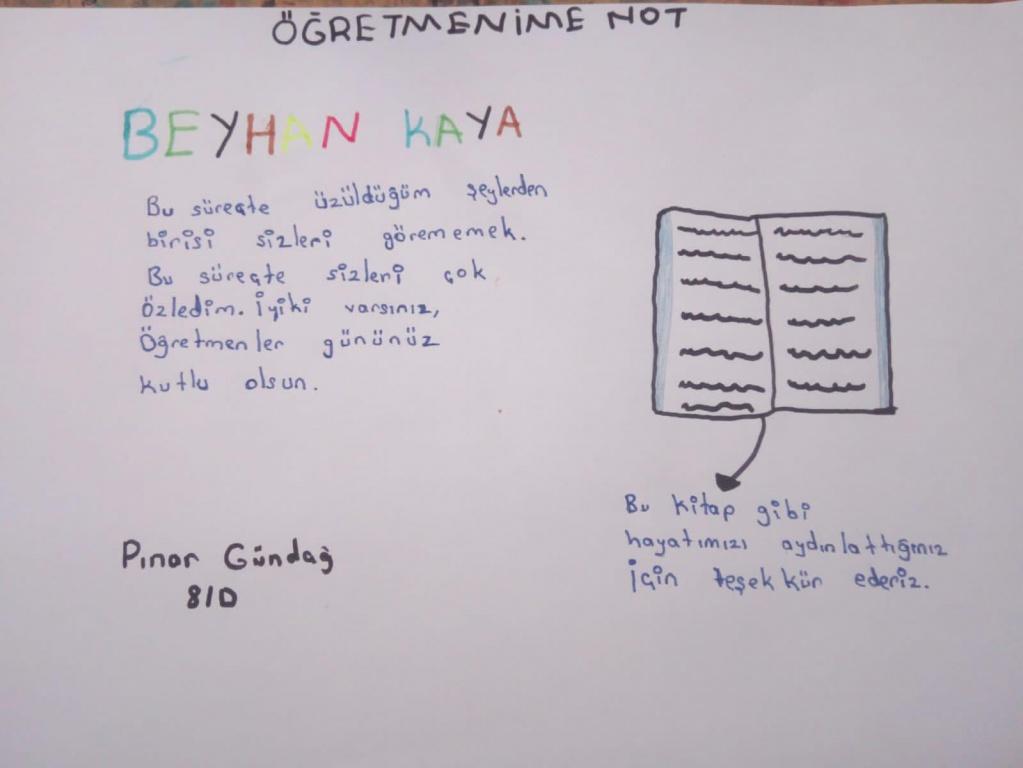 ÖĞRETMENİME NOT
BEYHAN KAYA
Bu süreçte üzüldüğüm şeylerden
birisi sizleri görememek.
Bu süreçte sizleri çok
özledim. İyiki varsınız,
Öğretmenler gününüz
kutlu olsun.
Bu kitap gibi
hayatımızı aydınlattığınız
için teşekkür ederiz.
Pınar Gündağ
8/D